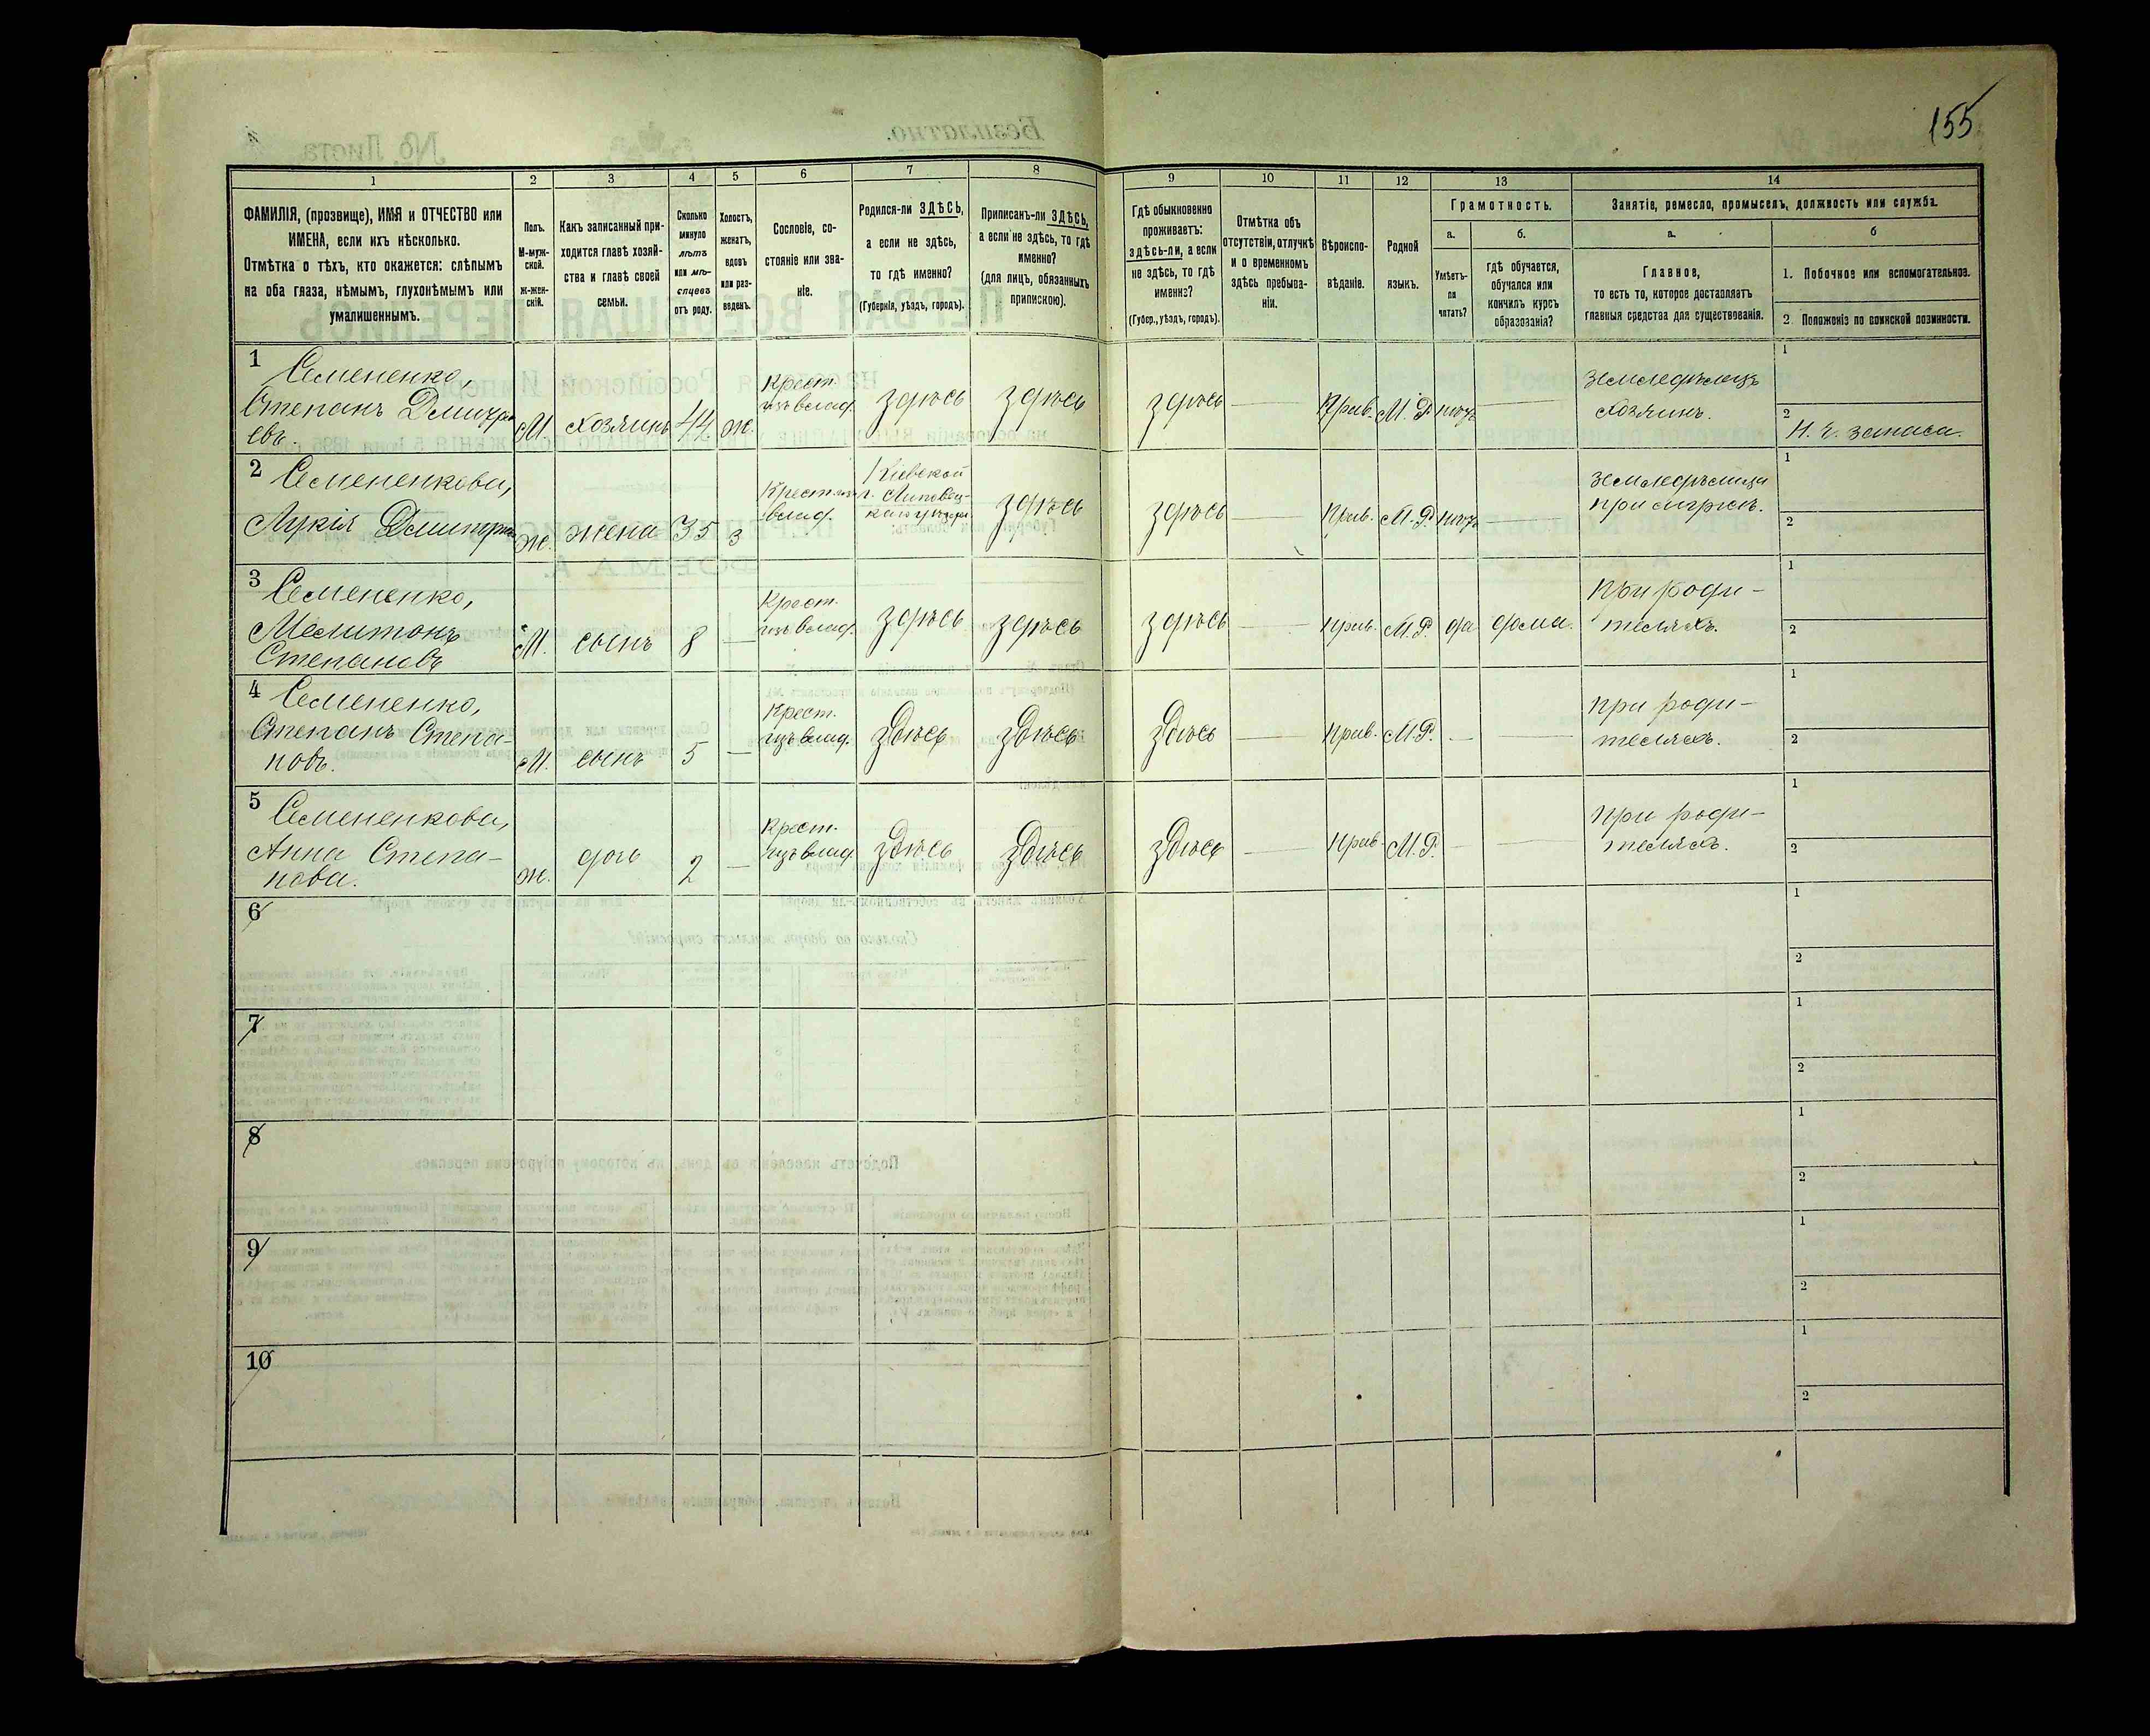 155
1
2
3
4
5
6
7
8
9
10
11
12
13
14
ФАМИЛІЯ, (прозвище), ИМЯ и ОТЧЕСТВО или
ИМЕНА, если ихъ нѣсколько.
Отмѣтка о тѣхъ, кто окажется: слѣпымъ
на оба глаза, нѣмымъ, глухонѣмымъ или
умалишеннымъ.
Полъ.
М-муж-
ской.
ж-жен-
скій.
Какъ записанный при-
ходится главѣ хозяй-
ства и главѣ своей
семьи.
Сколько
минуло
лѣтъ
или мѣ-
сяцевъ
отъ роду.
Холостъ,
женатъ,
вдовъ
или раз-
веденъ.
Сословіе, со-
стояніе или зва-
ніе.
Родился-ли ЗДѢСЬ,
а если не здѣсь,
то гдѣ именно?
(Губернія, уѣздъ, городъ).
Приписанъ-ли ЗДѢСЬ,
а если не здѣсь, то гдѣ
именно?
(для лицъ, обязанныхъ
припискою).
Гдѣ обыкновенно
проживаетъ:
здѣсь-ли, а если
не здѣсь, то гдѣ
именно?
(Губер., уѣздъ, городъ).
Отмѣтка объ
отсутствіи, отлучкѣ
и о временномъ
здѣсь пребыва-
ніи.
Вѣроиспо-
вѣданіе.
Родной
языкъ.
Грамотность.
а.
Умѣетъ-
ли
читать?
б.
гдѣ обучается,
обучался или
кончилъ курсъ
образованія?
Занятіе, ремесло, промыселъ, должность или служба.
а.
Главное,
то есть то, которое доставляетъ
главныя средства для существованія.
б
1. Побочное или вспомогательное.
2. Положеніе по воинской повинности.
1
Семененко,
Степанъ Дмитрі
евъ.
М.
хозяинъ
44
ж.
Крест.
изъ влад.
здѣсь
здѣсь
здѣсь
Прав.
М. Р.
нѣтъ
земледѣлецъ
хозяинъ.
1
2
Н. ч. запаса.
2
Семененкова,
Лукія Дмитрі
ж.
жена
35
з
Крест. изъ
влад.
Кіевской
г. Липовец-
каго уѣзда
здѣсь
здѣсь
Прав.
М. Р.
нѣтъ
земледѣлица
при мужѣ.
1
2
3
Семененко,
Мелитонъ
Степановъ
М.
сынъ
8
Крест.
изъ влад.
здѣсь
здѣсь
здѣсь
прав.
М.Р.
да
дома.
При роди-
теляхъ.
1
2
4
Семененко,
Степанъ Степа
новъ.
М.
сынъ
5
Крест.
изъ влад.
здѣсь
здѣсь
здѣсь
прав.
М.Р.
при роди-
теляхъ.
1
2
5
Семененкова,
Анна Степа-
нова.
ж.
дочь
2
Крест.
изъ влад.
здѣсь
здѣсь
здѣсь
прав.
М.Р.
при роди-
теляхъ.
1
2
6
1
2
7
1
2
8
1
2
9
1
2
10
1
2